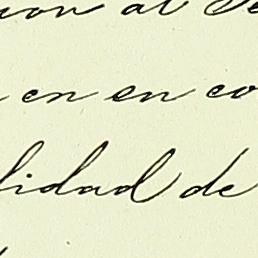 ion al Se
en en co
lidad de